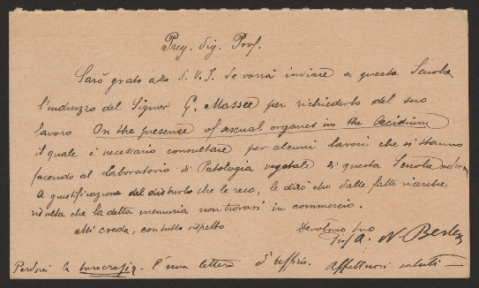 Preg. Sig. Prof.
Sarò grato alla S. V. I. se vorrà inviare a questa Scuola
l'indirizzo del Signor G. Massee per richiederlo del suo
lavoro On the presence of sexual organes in the Aecidium
il quale è necessario consultare per alcuni lavori che si stanno
facendo al Laboratorio di Patologia vegetale di questa Scuola
A giustificazione del disturbo che le reco, le dirò che dalle fatte ricerche
risulta che la detta memoria non trovasi in commercio.
Mi creda, con tutto rispetto
Devotmo Suo
A. N. Berlese
Perdoni la burocrazia. È una lettera d'ufficio. Affettuosi saluti